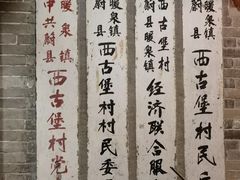 中共蔚县
暖泉镇
西古堡村党
蔚县
暖泉镇
西古堡村民委
蔚县暖泉镇
西古堡村
经济联合服
蔚县
暖泉镇
西古堡村民